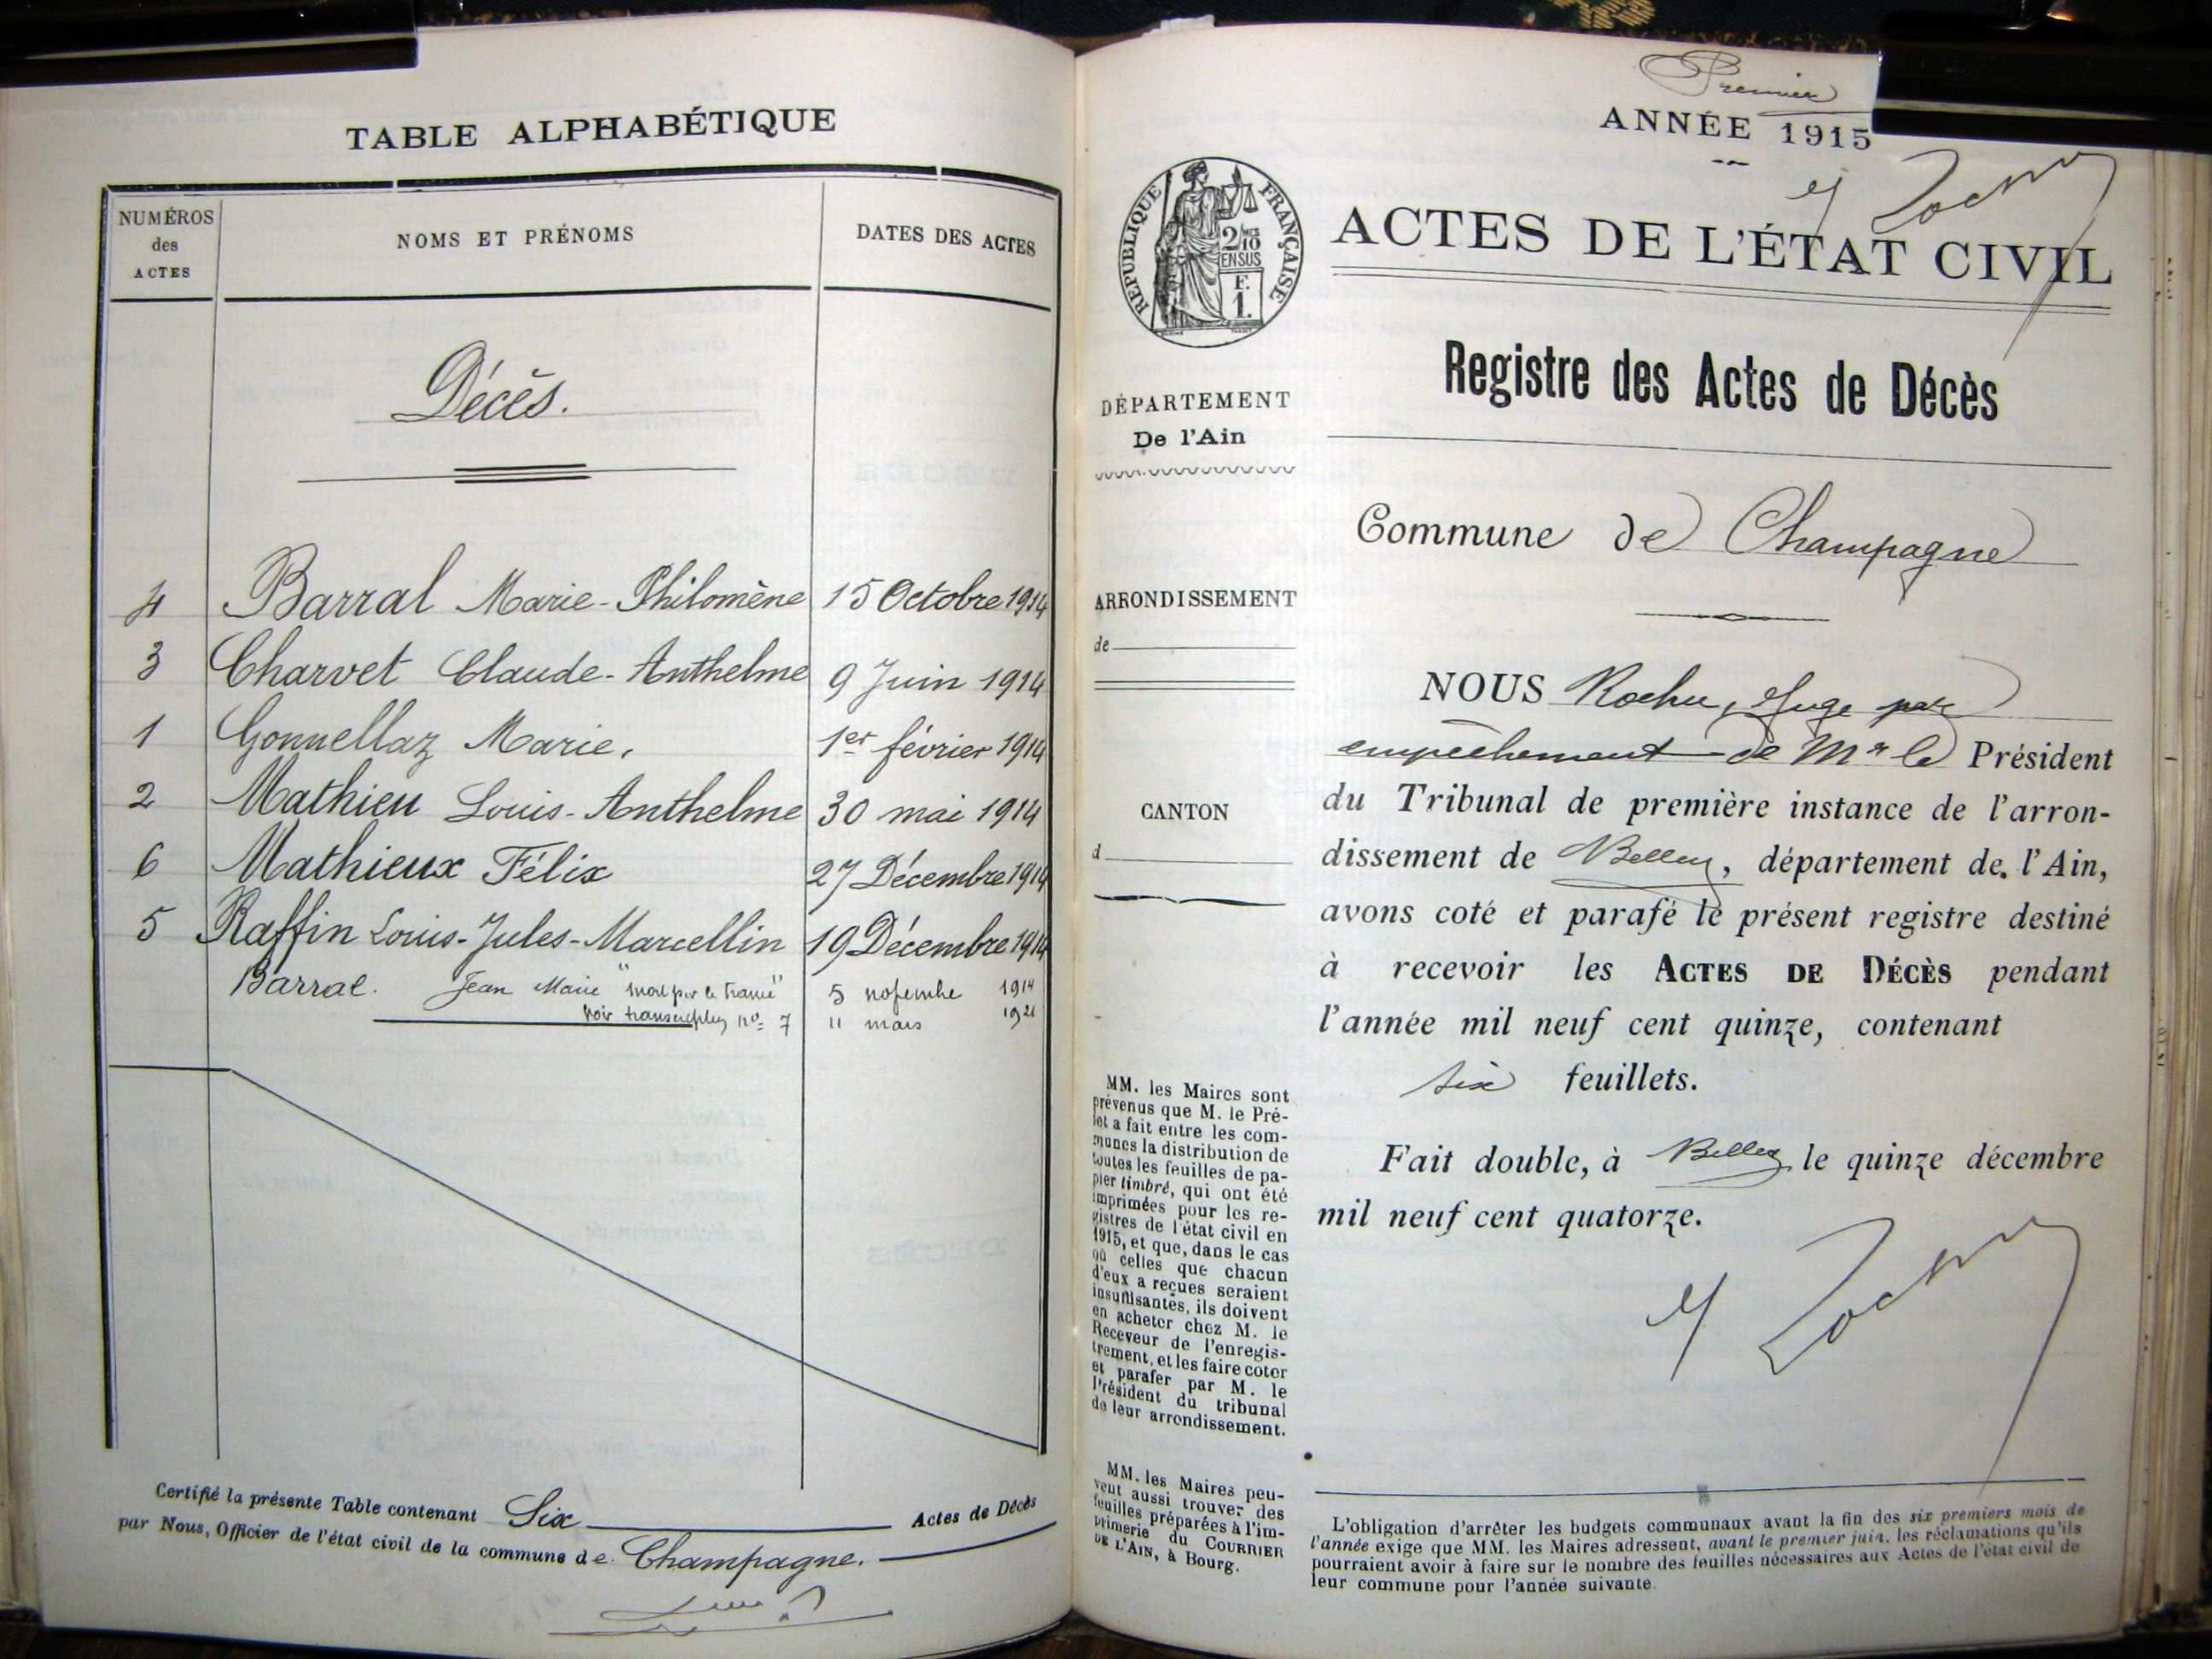 TABLE ALPHABÉTIQUE
NUMÉROS
des
ACTES
NOMS ET PRÉNOMS
DATES DES ACTES
Décès.
4 Barral Marie-Philomène 15 Octobre 1914
3 Charvet Claude-Anthelme 9 Juin 1914
1 Gonnellaz Marie. 1er février 1914
2 Mathieu Louis-Anthelme 30 mai 1914
6 Mathieux Félix 27 Décembre 1914
5 Raffin Louis-Jules-Marcellin 19 Décembre 1914
Barral. Jean Marie "mort pr la France" 5 novembre 1914
Voir transcription no= 7 11 mars 1921
Certifié la présente Table contenant Six Actes de Décès
par Nous, Officier de l'état civil de la commune de Champagne.
Premier
ANNÉE 1915
RÉPUBLIQUE FRANÇAISE
2/10
EN SUS
F.
1.
ACTES DE L'ÉTAT CIVIL
Registre des Actes de Décès
DÉPARTEMENT
De l'Ain
Commune de Champagne
ARRONDISSEMENT
de
CANTON
d
NOUS Rochu, Juge par
empêchement de Mr le Président
du Tribunal de première instance de l'arron-
dissement de Belley, département de. l'Ain,
avons coté et parafé le présent registre destiné
à recevoir les ACTES DE DÉCÈS pendant
l'année mil neuf cent quinze, contenant
six feuillets.
Fait double, à Belley le quinze décembre
mil neuf cent quatorze.
MM. les Maires sont
prévenus que M. le Pré-
fet a fait entre les com-
munes la distribution de
toutes les feuilles de pa-
pier timbré, qui ont été
imprimées pour les re-
gistres de l'état civil en
1915, et que, dans le cas
où celles que chacun
d'eux a reçues seraient
insuffisantes, ils doivent
en acheter chez M. le
Receveur de l'enregis-
trement, et les faire coter
et parafer par M. le
Président du tribunal
de leur arrondissement.
MM. les Maires peu-
vent aussi trouver des
feuilles préparées à l'im-
primerie du COURRIER
DE L'AIN, à Bourg.
L'obligation d'arrêter les budgets communaux avant la fin des six premiers mois de
l'année exige que MM. les Maires adressent, avant le premier juin, les réclamations qu'ils
pourraient avoir à faire sur le nombre des feuilles nécessaires aux Actes de l'état civil de
leur commune pour l'année suivante.